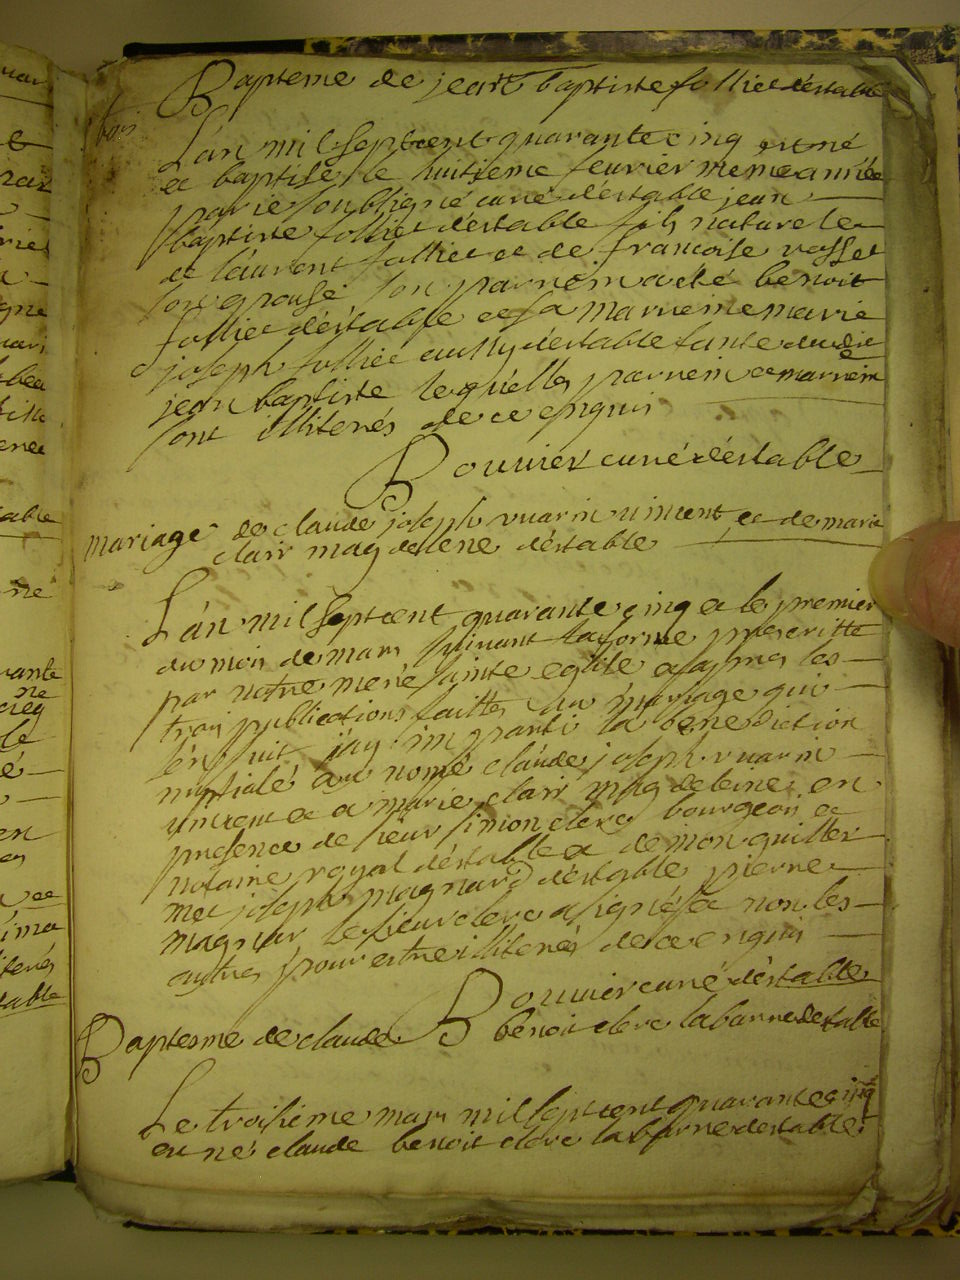 Bapteme de jean baptiste folliet déstable
L'an mil septcent quarante cinq est né
et baptisé le huitieme feurier meme année
par ie soubsigné curé déstable jean
baptiste folliet déstable fils naturele
de laurent folliet et de francoise rosset
son epouse son parrein a eté benoit
folliet déstable et sa marreine marie
joseph folliet aussy déstable tante dudit
jean baptiste lesquelles parrein et marreine
sont illiterés de ce enquis
Bouuier curé déstable
mariage de claude joseph vuarin uincent et de marie
clair magdelene déstable
L'an mil septcent quarante cinq et le premier
du mois de mars suiuant la forme prescritte
par notre mere sainte eglise et apres les
trois publications faittes du mariage qui
s'en suit j'ay imparti la benediction
nuptiale au nomé claude joseph vuarin
uincent et a marie clair magdeleine en
presence de sieur simon clerc bourgeois et
notaire royal déstable et de mon
met joseph magnard déstable pierre
magnar le sieur clerc a signé et non les
autres pour estre illiterés de ce enquis
Bouuier curé déstable
Baptesme de claude benoit clerc labarre destable
Le troisieme mars mil septcent quarante cinq
est né claude benoit clerc labarre destable